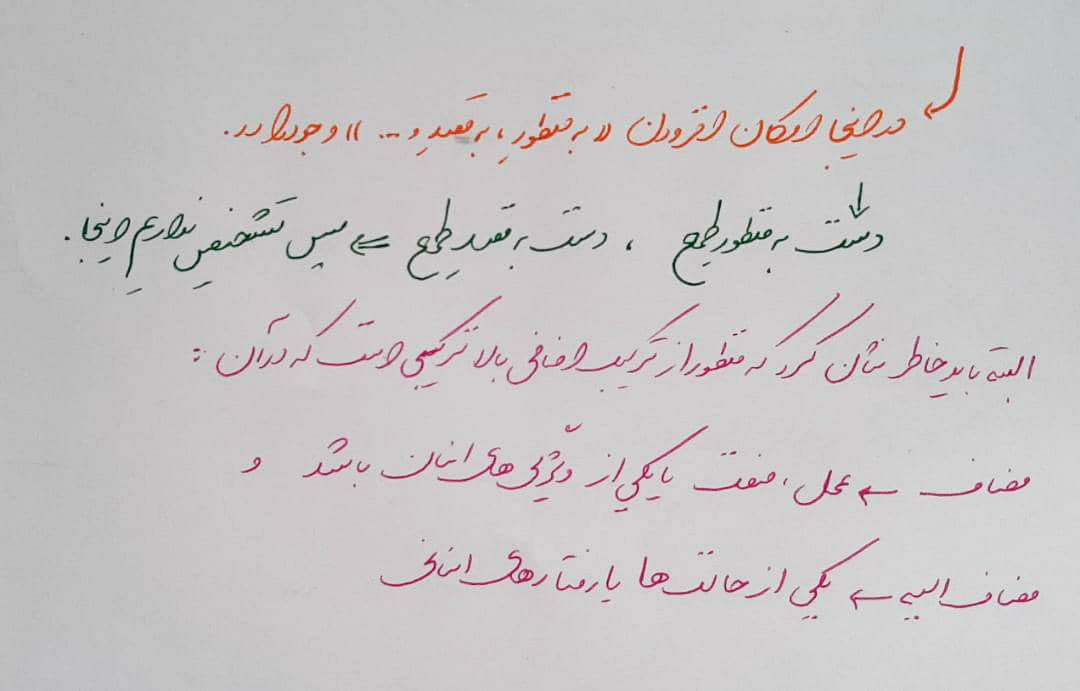 در اینجا امکان افزودن « به منظورِ ، به قصدِ و ... » وجود دارد.
دست به منظور طمع ، دست به قصدِ طمع ⇐ پس تشخیص نداریم اینجا.
البته باید خاطر نشان کرد که منظور از ترکیب اضافی بالا ترکیبی است که در آن :
مضاف ← عمل ، صفت یا یکی از ویژگی های انسان باشد و
مضاف الیه ← یکی از حالت ها یا رفتارهای انسانی